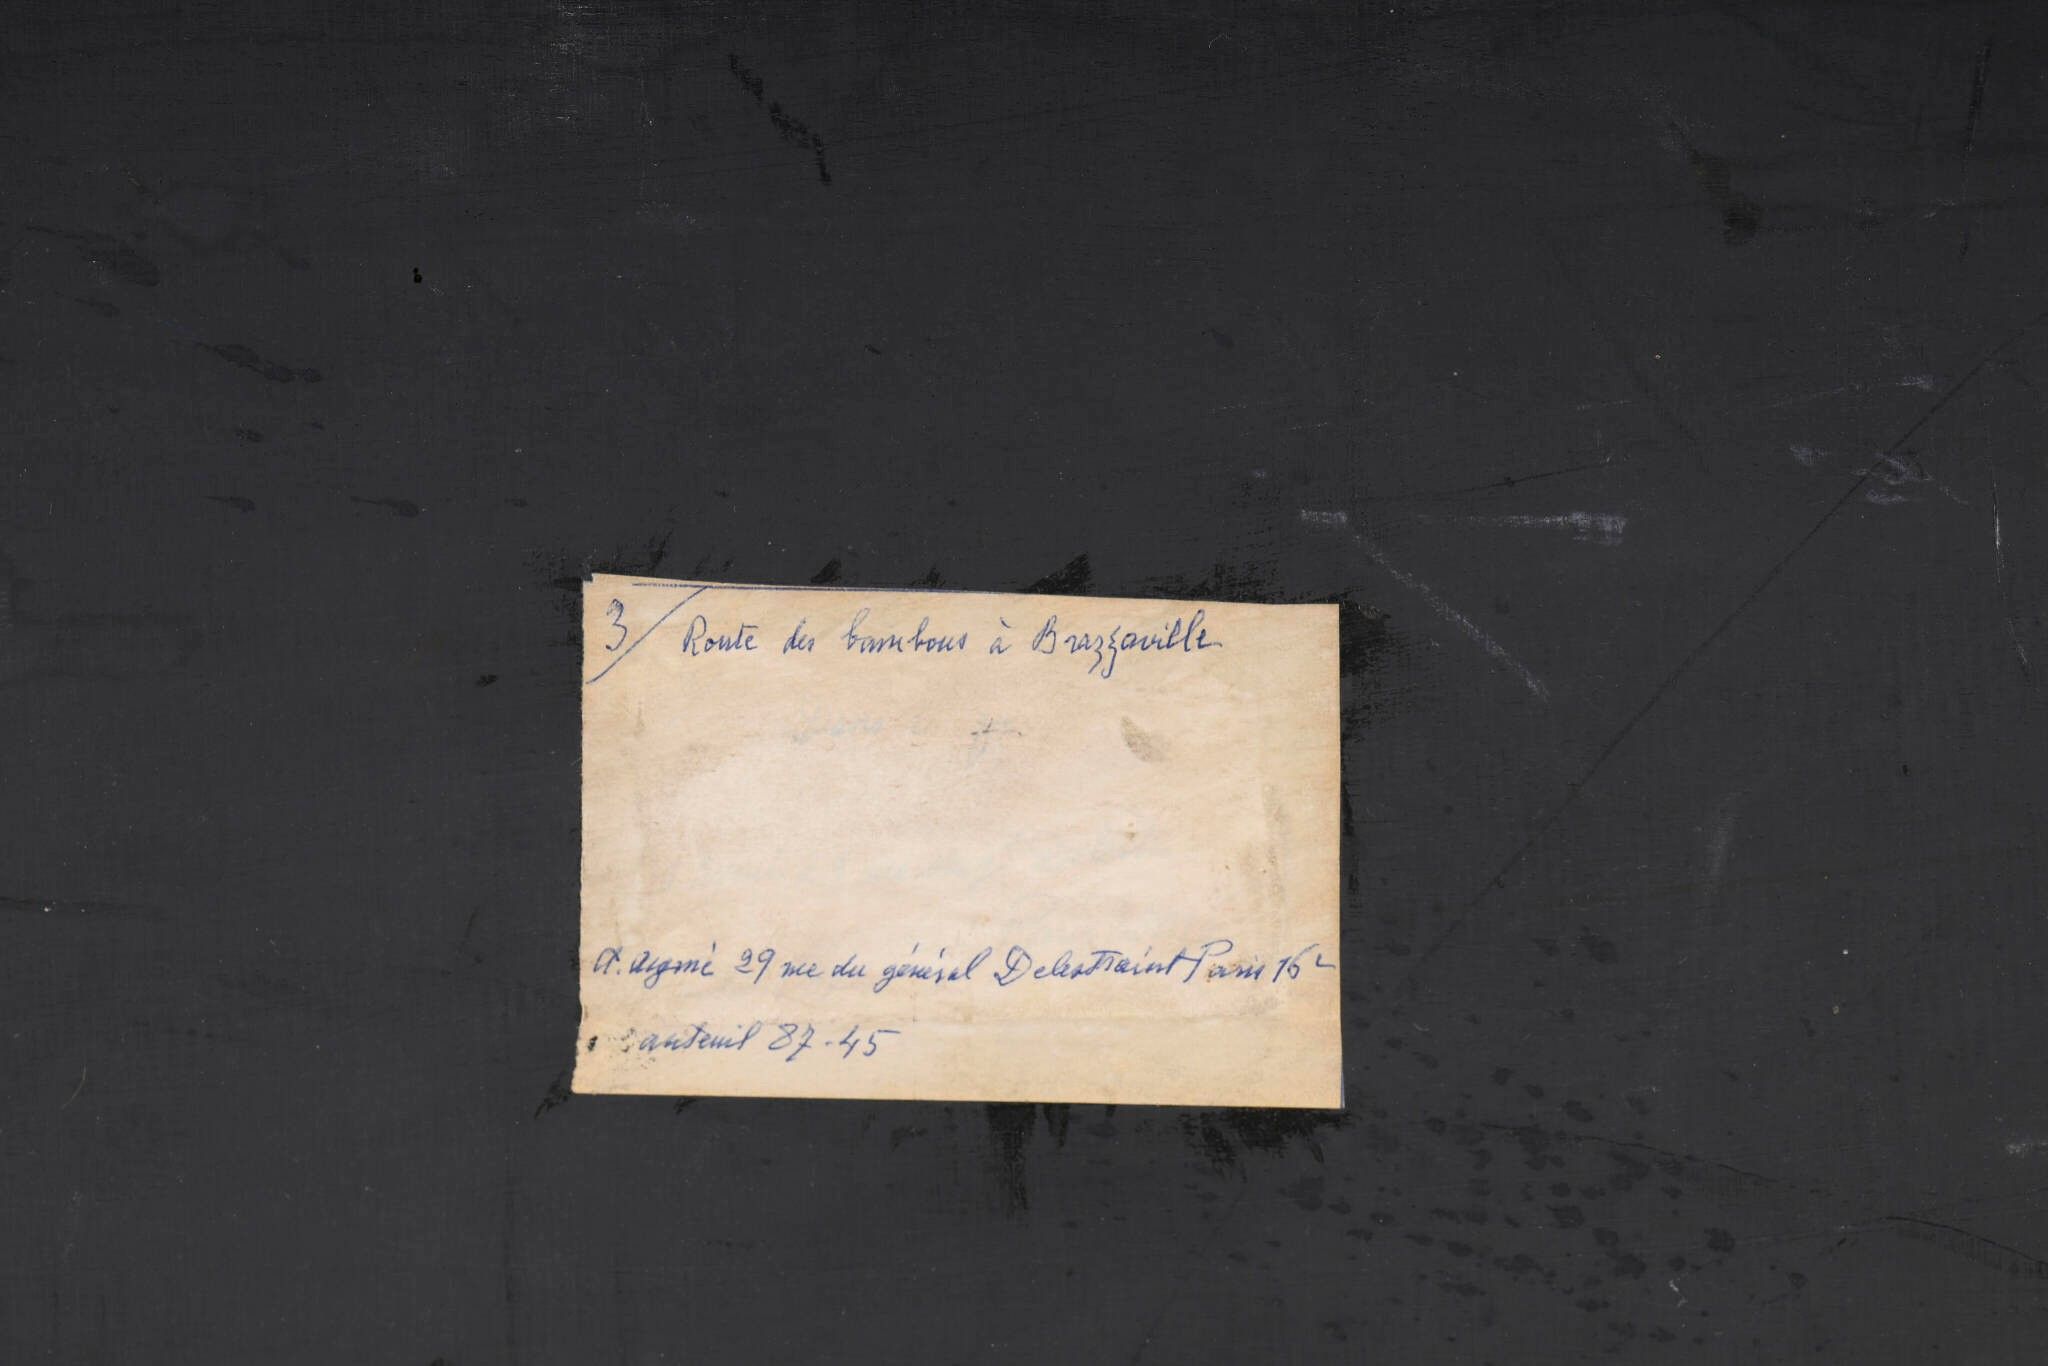 3/ Route des bambous à Brazzaville
A. Aymé 29 rue du général Delestraint Paris 16e
auteuil 87-45